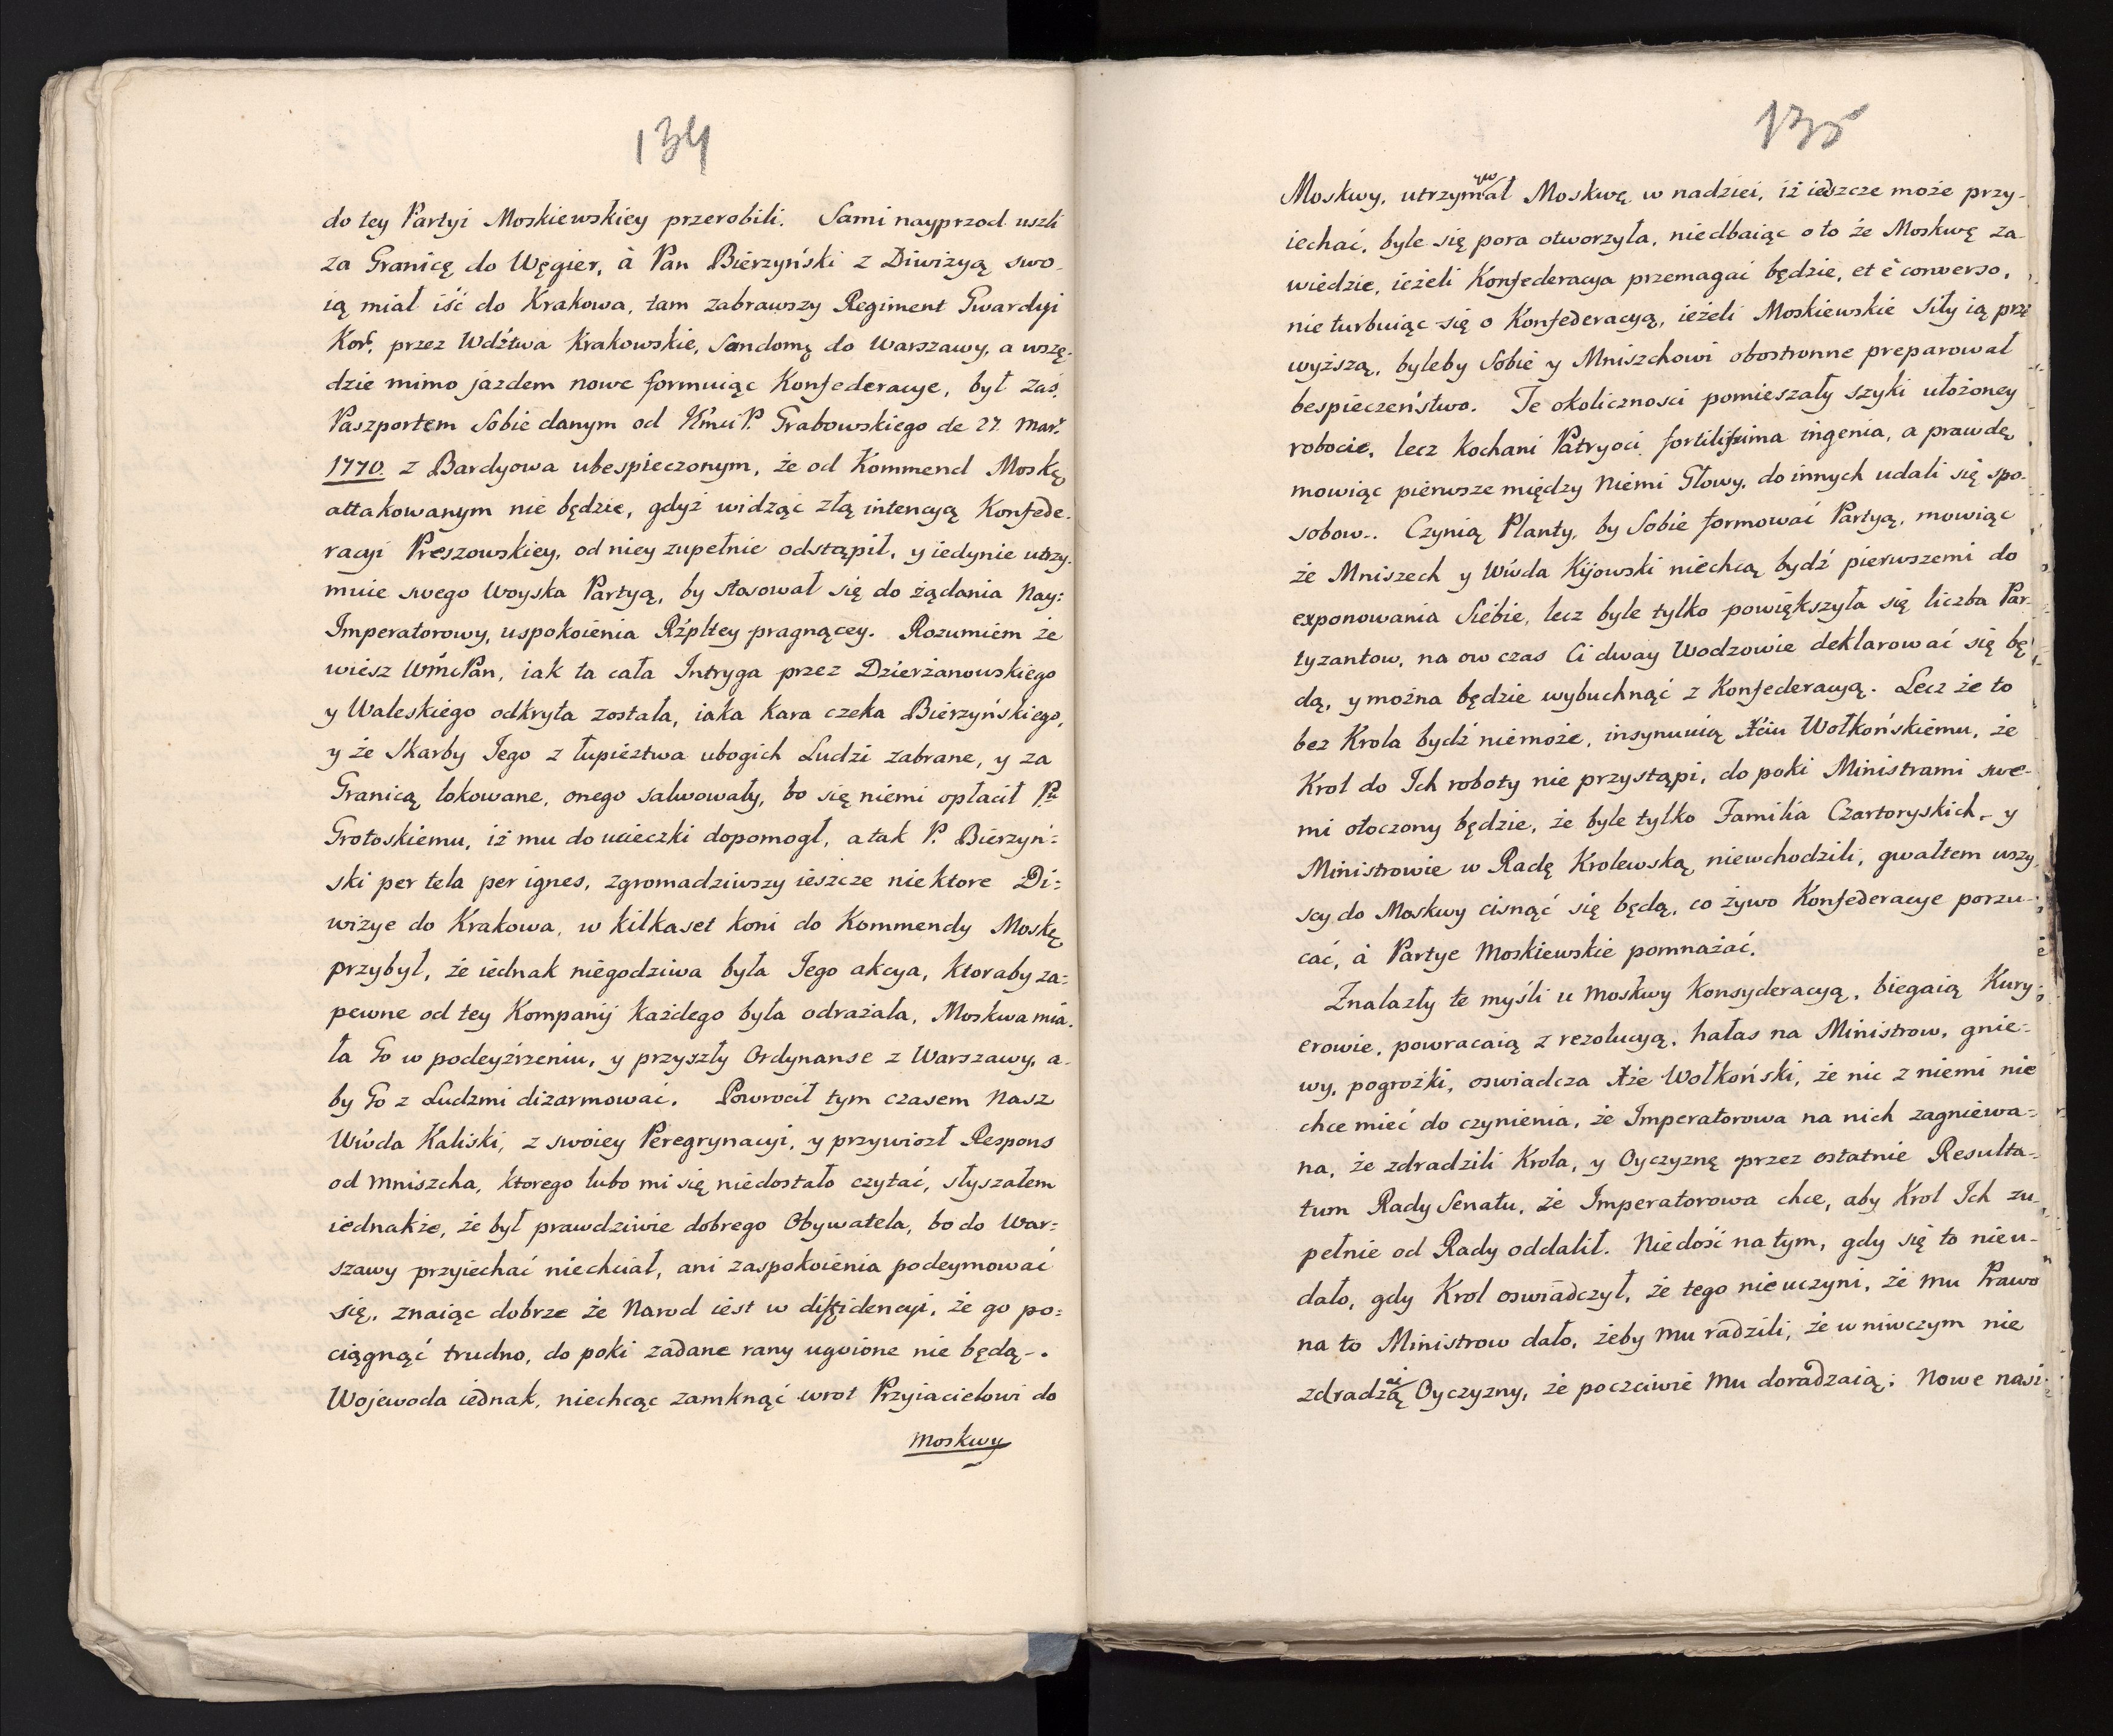 134
do tey Partyi Moskiewskiey przerobili. Sami nayprzod uszli
za Granicę do Węgier, à Pan Bierzyński z Diwizyą swo-
ią miał iść do Krakowa, tam zabrawszy Regiment Gwardyi
Kor: przez Wdźtwa Krakowskie, Sandomę do Warszawy, a wszę-
dzie mimo jazdem nowe formuiąc Konfederacye, był zaś
Paszportem Sobie danym od P. Grabowskiego de 27. Mar:
1770. z Bardyowa ubespieczonym, że od Kommend Moskę
attakowanym nie będzie, gdyż widząc złą intencyą Konfede-
racyi Preszowskiey, od niey zupełnie odstąpił, y iedynie utrzy-
muie swego Woyska Partyą, by stosował się do żądania Nay:
Imperatorowy, uspokoienia Rźpltey pragnącey. Rozumiem że
wiesz WmcPan, iak ta cała Intryga przez Dzierżanowskiego
y Waleskiego odkryta została, iaka kara czeka Bierzyńskiego,
y że Skarby Jego z łupieztwa ubogich Ludzi zabrane, y za
Granicą lokowane, onego salwowały, bo się niemi opłacił Pu
Grotoskiemu, iż mu do ucieczki dopomogł, a tak P. Bierzyń=
ski per tela per ignes, zgromadziwszy ieszcze niektore Di=
wizye do Krakowa, w kilkaset koni do Kommendy Moskę
przybył, że iednak niegodziwa była Jego akcya, ktoraby za=
pewne od tey Kompanij każdego była odrażała, Moskwa mia-
ła Go w podeyźrzeniu, y przyszły Ordynanse z Warszawy, a-
by Go z Ludzmi dizarmować. Powrocił tym czasem Nasz
Wwda Kaliski, z swoiey Peregrynacyi, y przywiozł Respons
od Mniszcha, ktorego lubo mi się niedostało czytać, słyszałem
iednakże, że był prawdziwie dobrego Obywatela, bo do War=
szawy przyiechać niechciał, ani zaspokoienia podeymować
się, znaiąc dobrze że Narod iest w diffidencyi, że go po=
ciągnąć trudno, do poki zadane rany ugoione nie będą-.
Wojewoda iednak, niechcąc zamknąć wrot Przyiacielowi do
Moskwy
135
Moskwy, utrzymywał Moskwę w nadziei, iż ieszcze może przy-
iechać, byle się pora otworzyła, niedbaiąc o to że Moskwę za-
wiedzie, ieżeli Konfederacya przemagać będzie, et è converso,
nie turbuiąc się o Konfederacyą, ieżeli Moskiewskie Siły ią prze
wyższą, byleby Sobie y Mniszchowi obostronne preparował
bespieczeństwo. Te okoliczności pomieszały szyki ułożoney
robocie, lecz kochani Patryoci, fortilissima ingenia, a prawdę
mowiąc pierwsze między Niemi Głowy, do innych udali się spo-
sobow-. Czynią Planty, by Sobie formować Partyą, mowiąc
że Mniszech y Wwda Kijowski niechcą bydź pierwszemi do
exponowania Siebie, lecz byle tylko powiększyła się liczba Par-
tyzantow, na ow czas Ci dway Wodzowie deklarować się bę
dą, y można będzie wybuchnąć z Konfederacyą. Lecz że to
bez Krola bydź niemoże, insynuuią Xciu Wołkońskiemu, że
Krol do Ich roboty nie przystąpi, do poki Ministrami swe-
mi otoczony będzie, że byle tylko Familia Czartoryskich, y
Ministrowie w Radę Krolewską, niewchodzili, gwałtem wszy-
scy do Moskwy cisnąć się będą, co żywo Konfederacye porzu-
cać, à Partye Moskiewskie pomnażać.
Znalazły te myśli u Moskwy Konsyderacyą, biegaią Kury-
erowie, powracaią z rezolucyą, hałas na Ministrow, gnie-
wy, pogrożki, oswiadcza Xże Wołkoński, że nic z niemi nie
chce mieć do czynienia, że Imperatorowa na nich zagniewa=
na, że zdradzili Krola, y Oyczyznę przez ostatnie Resulta-
tum Rady Senatu, że Imperatorowa chce, aby Krol Ich zu-
pełnie od Rady oddalił. Niedość na tym, gdy się to nieu-
dało, gdy Krol oswiadczył, że tego nie uczyni, że Mu Prawo
na to Ministrow dało, żeby Mu radzili, że w niwczym nie
Oyczyzny, że poczciwie Mu doradzaią; Nowe nasi-